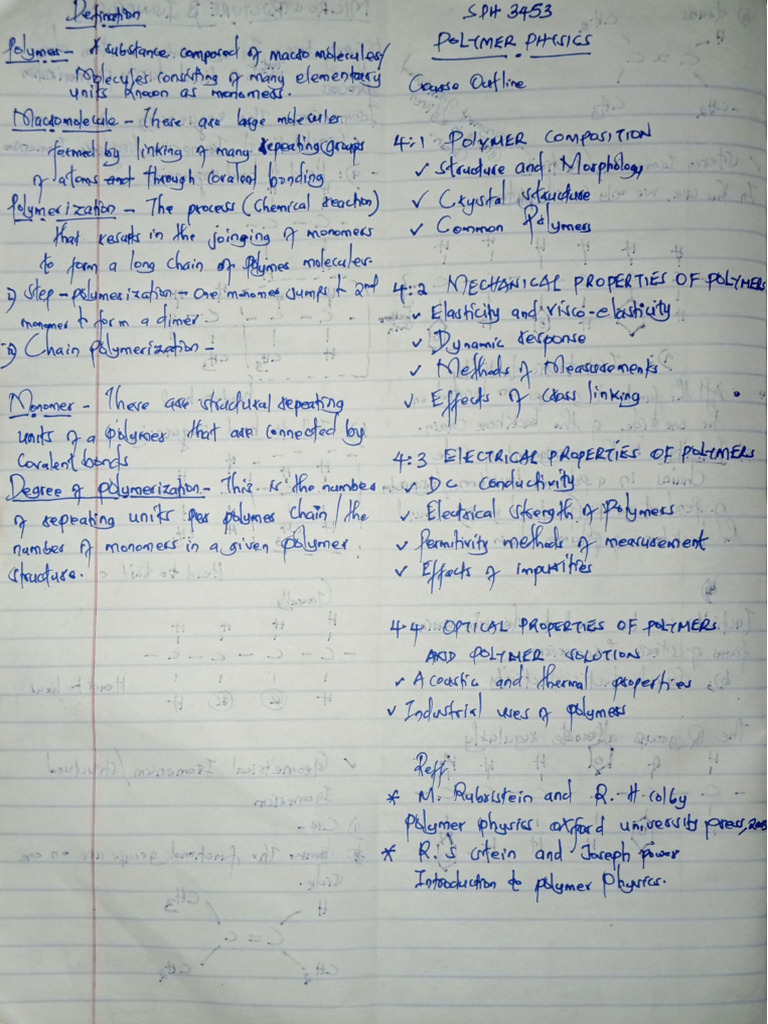 Defination
Polymer - A substance composed of macromolecules/
Molecules consisting of many elementary
units known as monomers.
Macromolecule - These are large molecules
formed by linking of many repeating groups
of atoms and through covalent bonding
Polymerization - The process (chemical reaction)
that results in the joinging of monomers
to form a long chain of polymer molecules.
i) Step-polymerization - one monomer jumps to 2nd
monomer to form a dimer.
ii) Chain polymerization -
Monomer - These are structural repeating
units of a polymer that are connected by
covalent bonds
Degree of polymerization - This is the number
of repeating units per polymer chain/the
number of monomers in a given polymer
structure.
SPH 3453
POLYMER PHYSICS
Course Outline
4:1 POLYMER COMPOSITION
✓ Structure and Morphology
✓ Crystal structure
✓ Common Polymers
4:2 MECHANICAL PROPERTIES OF POLYMERS
✓ Elasticity and visco-elasticity
✓ Dynamic response
✓ Methods of Measurements
✓ Effects of cross linking
4:3 ELECTRICAL PROPERTIES OF POLYMERS
✓ DC conductivity
✓ Electrical strength of Polymers
✓ Permitivity methods of measurement
✓ Effects of impurities
4.4 OPTICAL PROPERTIES OF POLYMERS
AND POLYMER SOLUTION
✓ Acoustic and thermal properties
✓ Industrial uses of polymers
Reff:
* M. Rubristein and R. H colby
Polymer physics oxford university press,
* R. S stein and Joseph power
Introduction to polymer Physics.